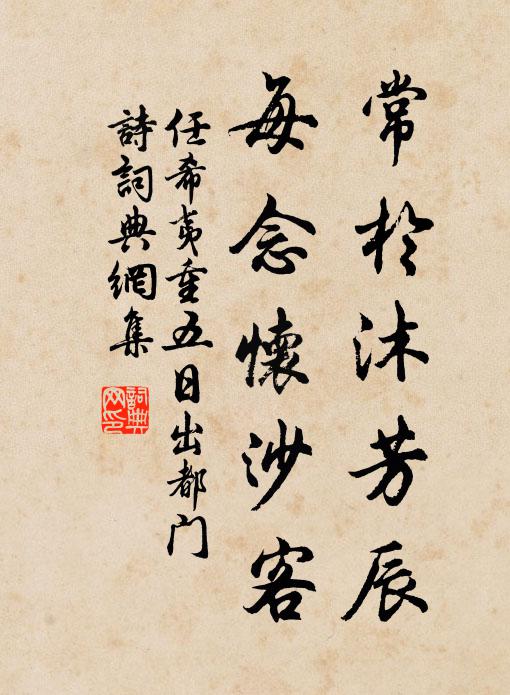 常於沐芳辰
每念懷沙客
任希夷重五日出都门
詩詞典網集
詞典网印